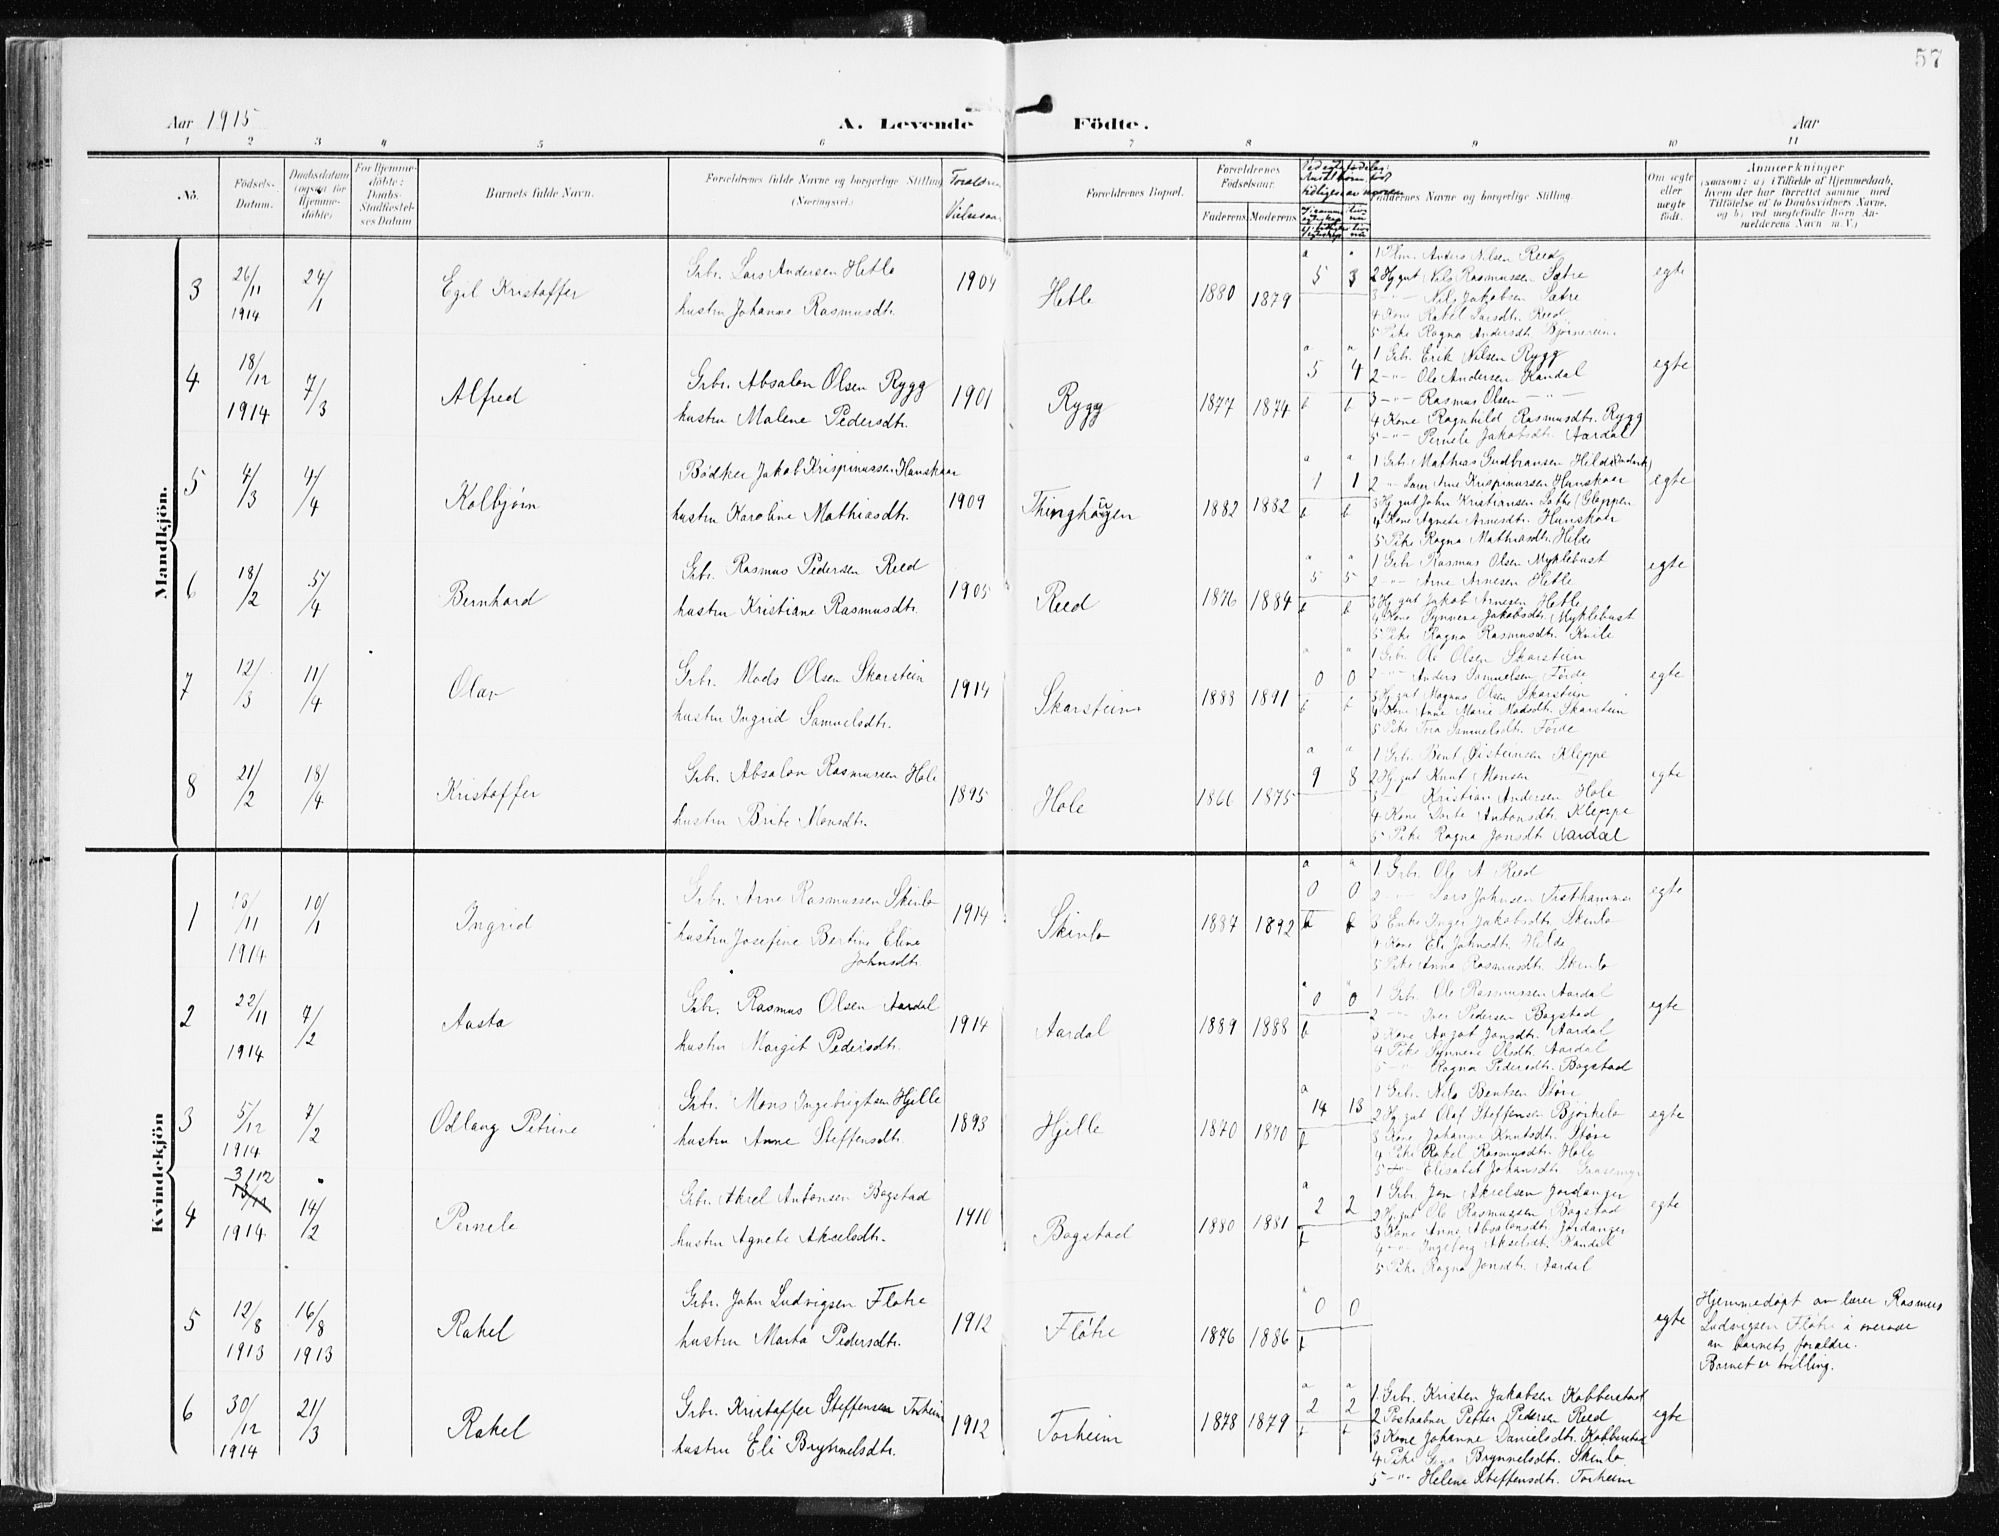 57
Aar 1915
A. Levende Födte.
Aar
1 2 3 4 5 6 7 8 9 10 11
No.
Födsels-
Datum.
Daabsdatum
(ogsaa for
Hjemme-
döbte)
For Hjemme-
döbte:
Daabs-
Stadfæstel-
ses Datum
Barnets fulde Navn.
Forældrenes fulde Navne og borgerlige Stilling
(Næringsvei.)
Forældrenes Bopæl.
Forældrenes
Födselsaar.
Faderens Moderens
Faddernes Navne og borgerlige Stilling.
Om ægte
eller
uægte
födt.
Anmærkninger
(saasom: a) i Tilfælde af Hjemmedaab,
hvem der har forrettet samme med
Tilföielse af to Daabsvidners Navne,
og b) ved uægtefödte Börn An-
melderens Navn m. V.)
Mandkjön.
3
26/11 1914
24/1
Egil Kristoffer
Grbr. Lars Andersen Hetle
hustru Johanne Rasmusdtr.
1904
Hetle
1880 1879
a "
5 3
1 Plm. Anders Nilsen Reed
2 Hg gut Nils Rasmussen Sætre
3 -"- Nils Jakobsen Sætre
4 Kone Rakel Larsdtr. Reed
5 Pike Ragna Andersdtr.
egte
4
18/12 1914
7/3
Alfred
Grbr. Absalon Olsen Rygg
hustru Malene Pedersdtr.
1901
Rygg
1877 1874
a "
5 4
b b
1 Grbr. Erik Nilsen Rygg
2 -"- Ole Andersen Kandal
3 -"- Rasmus Olsen -"-
4 Kone Ragnhild Rasmusdtr. Rygg
5 -"- Pernele Jakobsdtr. Aardal
egte
5
4/3
4/4
Kolbjørn
Bødker Jakob Krispinussen Hunskaar
hustru Karoline Mathiasdtr.
1909
Thinghaugen
1882 1882
a "
1 1
b b
1 Grbr. Mathias Gudbransen Hilde
2 " Lærer Arne Krispinussen Hunskaar
3 Hg gut John Kristiansen Sætre (Gloppen
4 Kone Agnete Arnesdtr. Hunskaar
5 Pike Ragna Mathiasdtr. Hilde
egte
6
18/2
5/4
Bernhard
Grbr. Rasmus Pedersen Reed
hustru Kristiane Rasmusdtr.
1905
Reed
1876 1884
a "
5 5
b b
1 Grbr Rasmus Olsen Myklebust
2 -"- Arne Arnesen Hetle
3 Hg gut Jakob Arnesen Hetle
4 Kone Synneve Jakobsdtr Myklebust
5 Pike Ragna Rasmusdtr. Kvile
egte
7
12/3
11/4
Olav
Grbr. Mads Olsen Skarstein
hustru Ingrid Samuelsdtr.
1914
Skarstein
1888 1891
a "
0 0
b b
1 Grbr. Ole Olsen Skarstein
2 -"- Anders Samuelsen Førde
3 Hg gut Magnus Olsen Skarstein
4 Kone Anne Marie Madsdtr Skarstein
5 Pike Tora Samuelsdtr. Førde
egte
8
21/2
18/4
Kristoffer
Grbr. Absalon Rasmussen Hole
hustru Brite Monsdtr.
1895
Hole
1866 1875
a "
9 8
1 Grbr. Bent Øisteinsen Kleppe
2 Hg gut Knut Monsen
3 Kristian Andersen Hole
4 Kone Dorte Antonsdtr. Kleppe
5 Pike Ragna Jonsdtr Aardal
egte
Kvindekjön
1
/11 1914
10/1
Ingrid
Grbr. Arne Rasmussen Skinlo
hustru Josefine Bertine Eline
Johnsdtr.
1914
Skinlo
1887 1892
a "
0 0
b b
1 Grbr. Ole A Reed
2 -"- Lars Johnsen Tisthammer
3 Enke Inger Jakobsdtr. Skinlo
4 Kone Eli Johnsdtr. Hilde
5 Pike Anna Rasmusdtr. Skinlo
egte
2
22/11 1914
7/2
Aasta
Grbr. Rasmus Olsen Aardal
hustru Margit Pedersdtr.
1914
Aardal
1889 1888
a "
0 0
b
1 Grbr. Ole Rasmussen Aardal
2 -"- Iver Pedersen Bogstad
3 Kone August Jonsdtr. Aardal
4 Pike Synneve Olsdtr. Aardal
5 -"- Ragna Pedersdtr. Bogstad
egte
3
5/12 1914
7/2
Odlaug Petrine
Grbr. Mons Ingebrigtsen Hjelle
hustru Anne Steffensdtr.
1893
Hjelle
1870 1870
a
14 13
b
1 Grbr. Nils Bentsen Støre
2 Hg gut Olaf Steffensen Bjørkelo
3 Kone Johanne Knutsdtr. Støre
4 Pike Rakel Rasmusdtr. Hole
5 -"- Elisabet Johansdtr.
egte
4
3/12 1914
14/2
Pernele
Grbr. Aksel Antonsen Bogstad
hustru Agnete Akselsdtr.
1910
Bogstad
1880 1881
a
2 2
b
1 Grbr. Jon Akselsen Jordanger
2 Hg gut Ole Rasmussen Bogstad
3 Kone Anne Absalonsdtr. Jordanger
4 -"- Ingeborg Akselsdt. Kandal
5 Pike Ragna Jonsdtr. Aardal
egte
5
12/8 1913
16/8 1913
Rakel
Grbr. John Ludvigsen Fløtre
hustru Marta Pedersdtr.
1912
Fløtre
1876 1886
a
0 0
b
egte
Hjemmedøpt av lærer Rasmus
Ludvigsen Fløtre i overvær
av barnets forældre.
Barnet er tvilling.
6
30/12 1914
21/3
Rakel
Grbr. Kristoffer Steffensen Torheim
hustru Eli Brynnelsdtr.
1912
Torheim
1878 1879
a "
2 2
b b
1 Grbr. Kristen Jakobsen Kobberstad
2 Postaabner Petter Pedersen Reed
3 Kone Johanne Danielsdtr. Kobberstad
4 Pike Brynnelsdtr. Skinlo
5 -"- Helene Steffensdtr. Torheim
egte